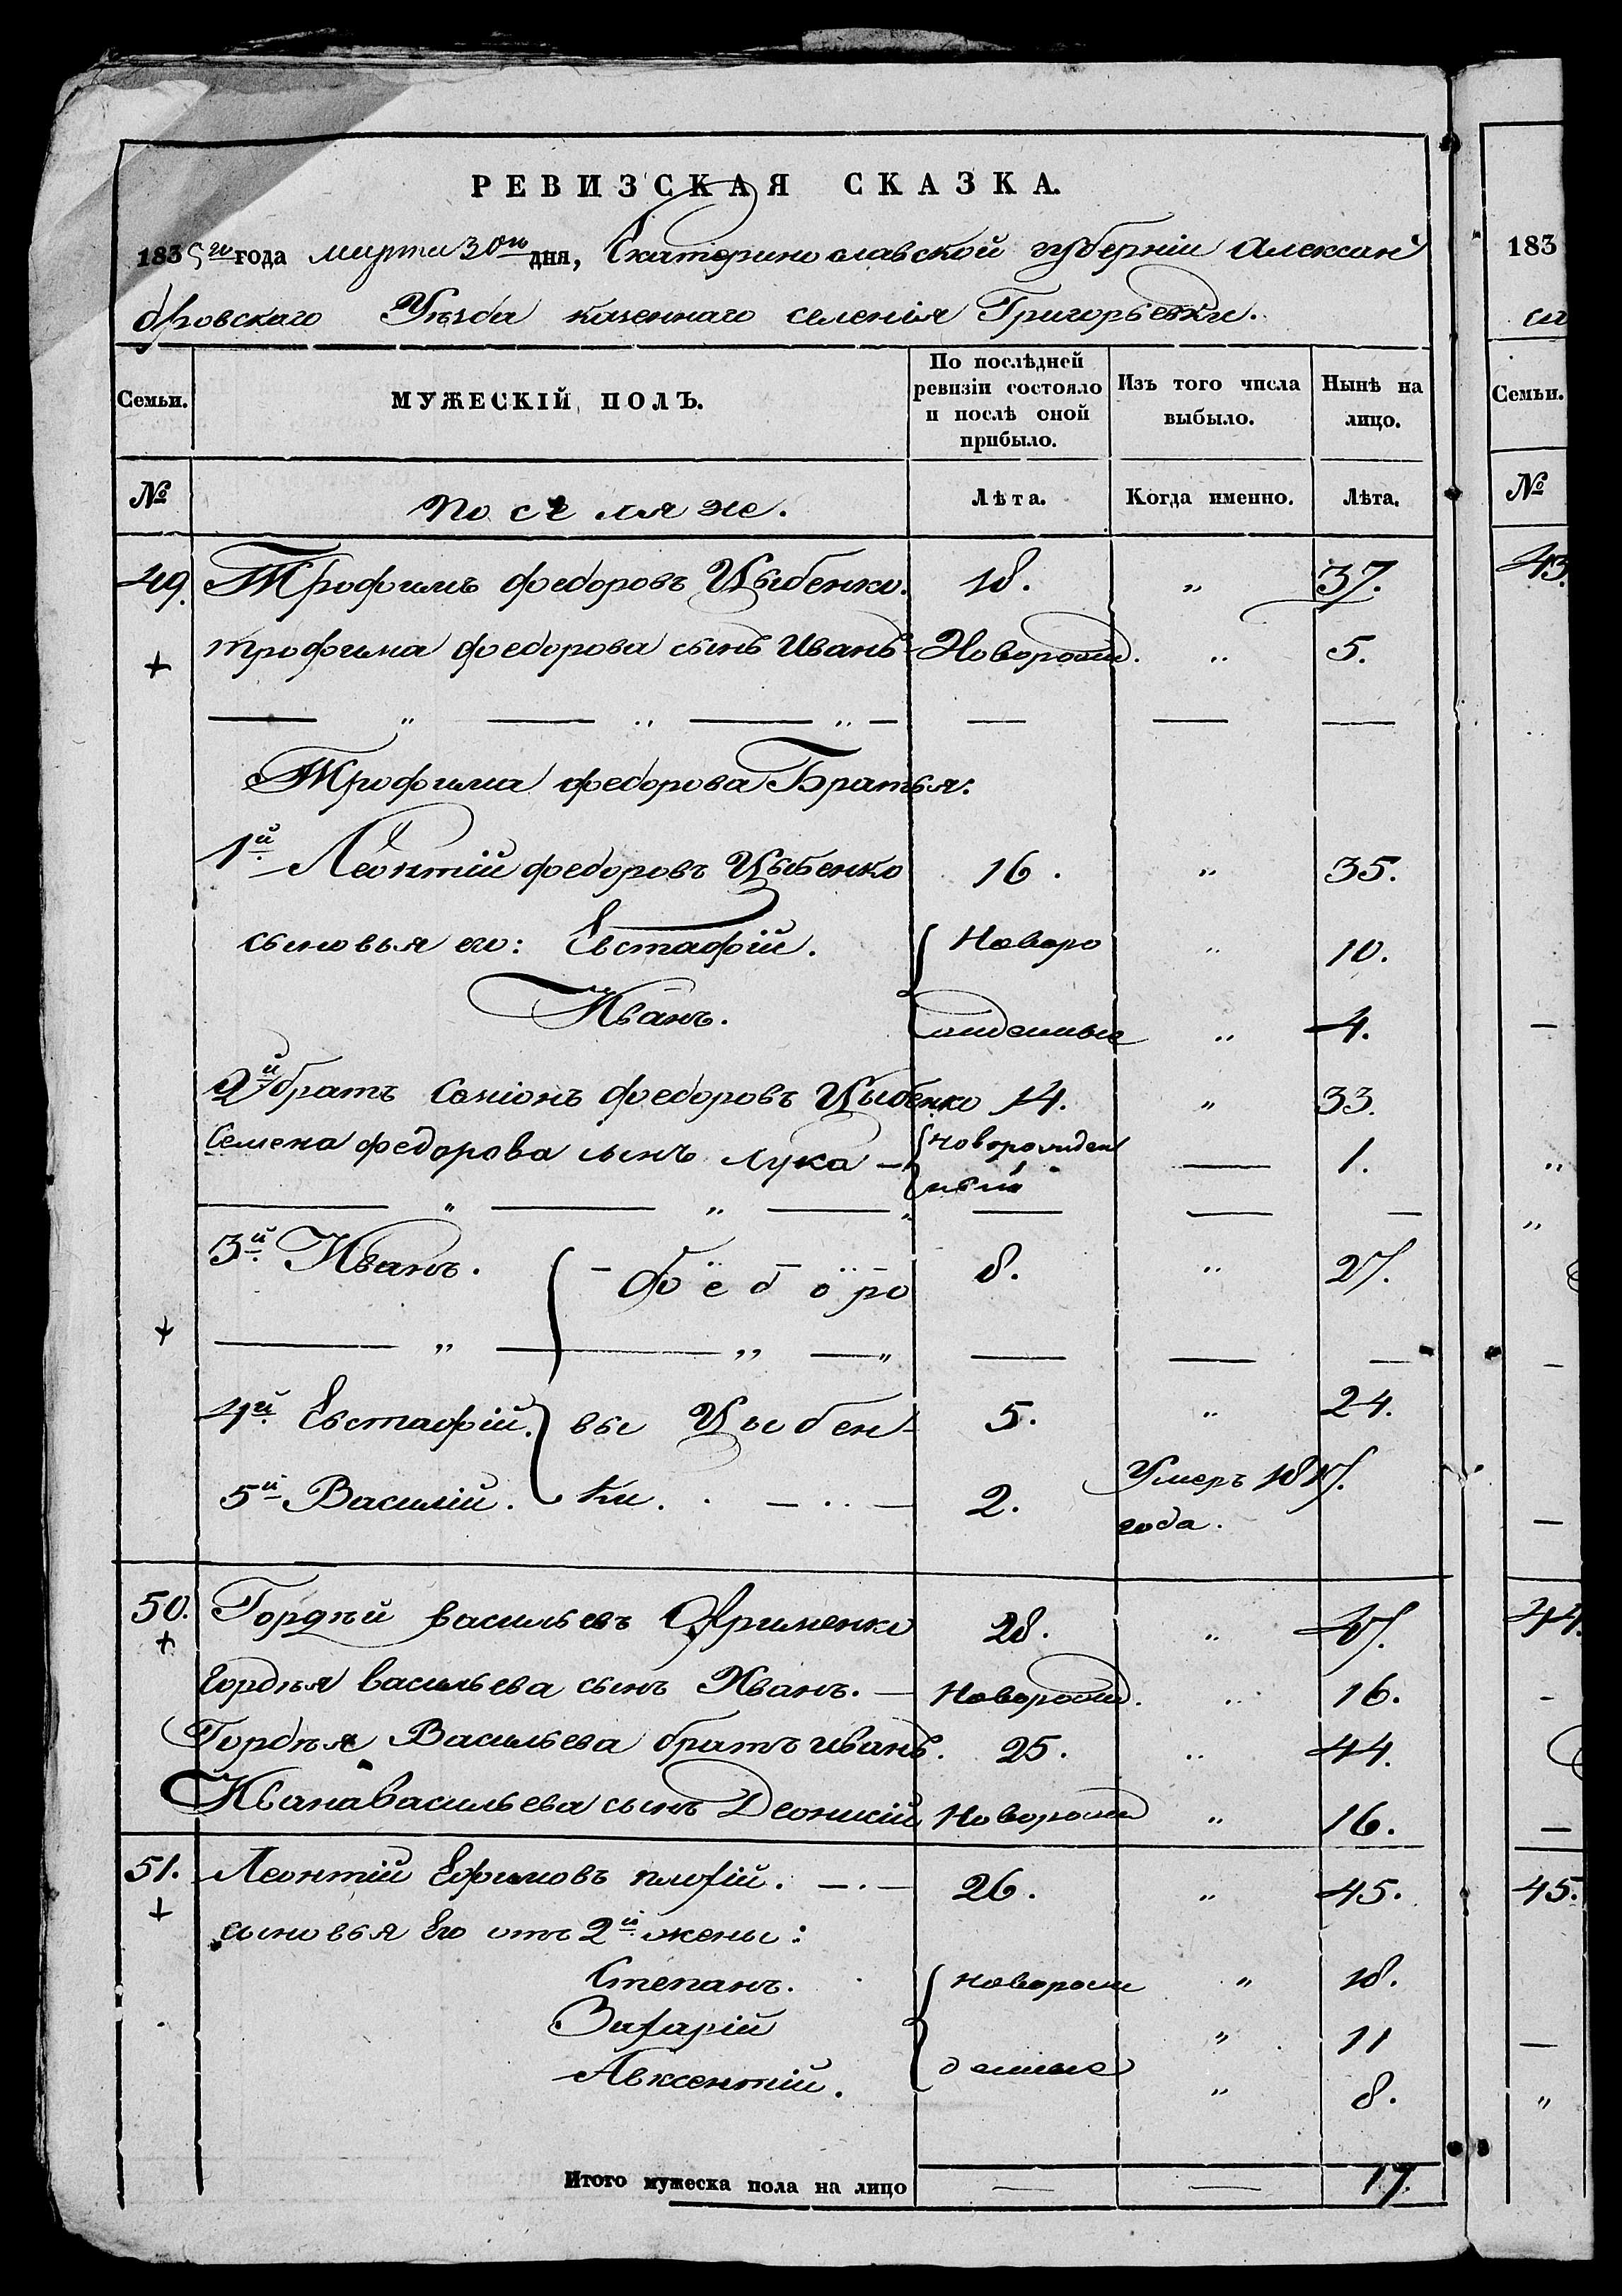 РЕВИЗСКАЯ СКАЗКА.
1835го года марта 30го дня, Екатеринославской губерніи Алексан
дровскаго Уѣзда казеннаго селенія Григорьевки.
Семьи. МУЖЕСКІЙ ПОЛЪ. По послѣдней ревизіи состояло и послѣ оной прибыло. Изъ того числа выбыло. Нынѣ на лицо.
№ Поселяне. Лѣта. Когда именно. Лѣта.
49. Трофимъ федоровъ Цыбенко. 18. " 37.
трофима федорова сынъ Иванъ Новорожд. " 5.
Трофима федорова Братья:
1й Леонтій федоровъ Цыбенко 16. " 35.
сыновья его: Евстафій. Новоро " 10.
Иванъ. жденные " 4.
2й братъ Семіонъ федоровъ Цыбенко 14. " 33.
Семена федорова сынъ Лука — новорожден — 1.
ный
3й Иванъ. федоро 8. " 27.
4й Евстафій. вы Цыбен- 5. " 24.
5й Василій. ки. 2. Умеръ 1817.
года.
50. Гордѣй васильевъ 28. " 47.
Гордѣя васильева сынъ Иванъ. — Новорожд. " 16.
Гордѣя Васильева братъ иванъ. 25. " 44.
Ивана васильева сынъ Деонисій Новорожд " 16.
51. Леонтій Ефимовъ 26. " 45.
сыновья Его отъ 2й жены:
Степанъ. новорож " 18.
Захарій " 11
Авксентій. денные " 8.
Итого мужеска пола на лицо — — 17.
183
Семьи.
№
43.
44.
45.